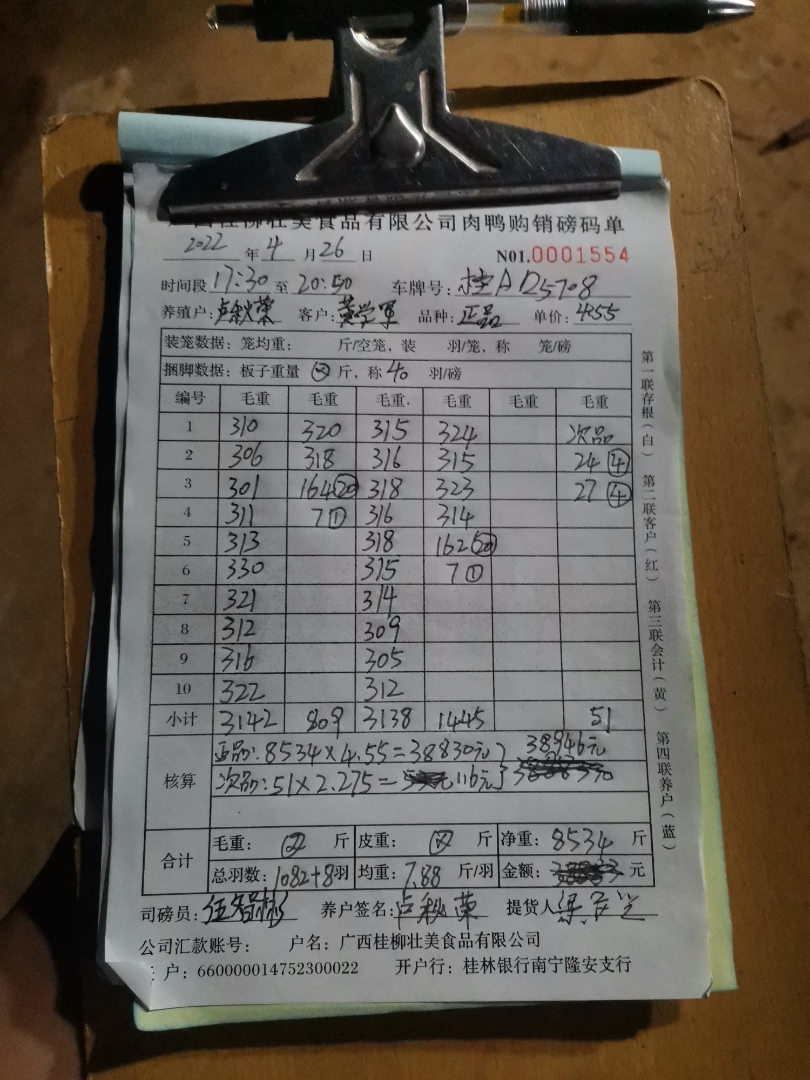 广西桂柳壮美食品有限公司肉鸭购销磅码单
2022 年 4 月 26 日 N01.0001554
时间段 17:30 至 20:50 车牌号: 桂AD5708
养殖户: 卢秋荣 客户: 黄学军 品种: 正品 单价: 4.55
装笼数据: 笼均重: 斤/空笼, 装 羽/笼, 称 笼/磅
捆脚数据: 板子重量 斤, 称 40 羽/磅
编号 毛重 毛重 毛重. 毛重 毛重 毛重
1 310 320 315 324 次品
2 306 318 316 315 24 ④
3 301 164⑳ 318 323 27 ④
4 311 7① 316 314
5 313 318 162⑳
6 330 315 7①
7 321 314
8 312 309
9 316 305
10 322 312
小计 3142 809 3138 1445 51
核算
正品: 8534×4.55=38830元 } 38946元
次品: 51×2.275= 116元
合计
毛重: 斤 皮重: 斤 净重: 8534 斤
总羽数: 1082+8羽 均重: 7.88 斤/羽 金额: 元
司磅员: 养户签名: 卢秋荣 提货人
公司汇款账号: 户名: 广西桂柳壮美食品有限公司
户: 660000014752300022 开户行: 桂林银行南宁隆安支行
第一联存根(白) 第二联客户(红) 第三联会计(黄) 第四联养户(蓝)